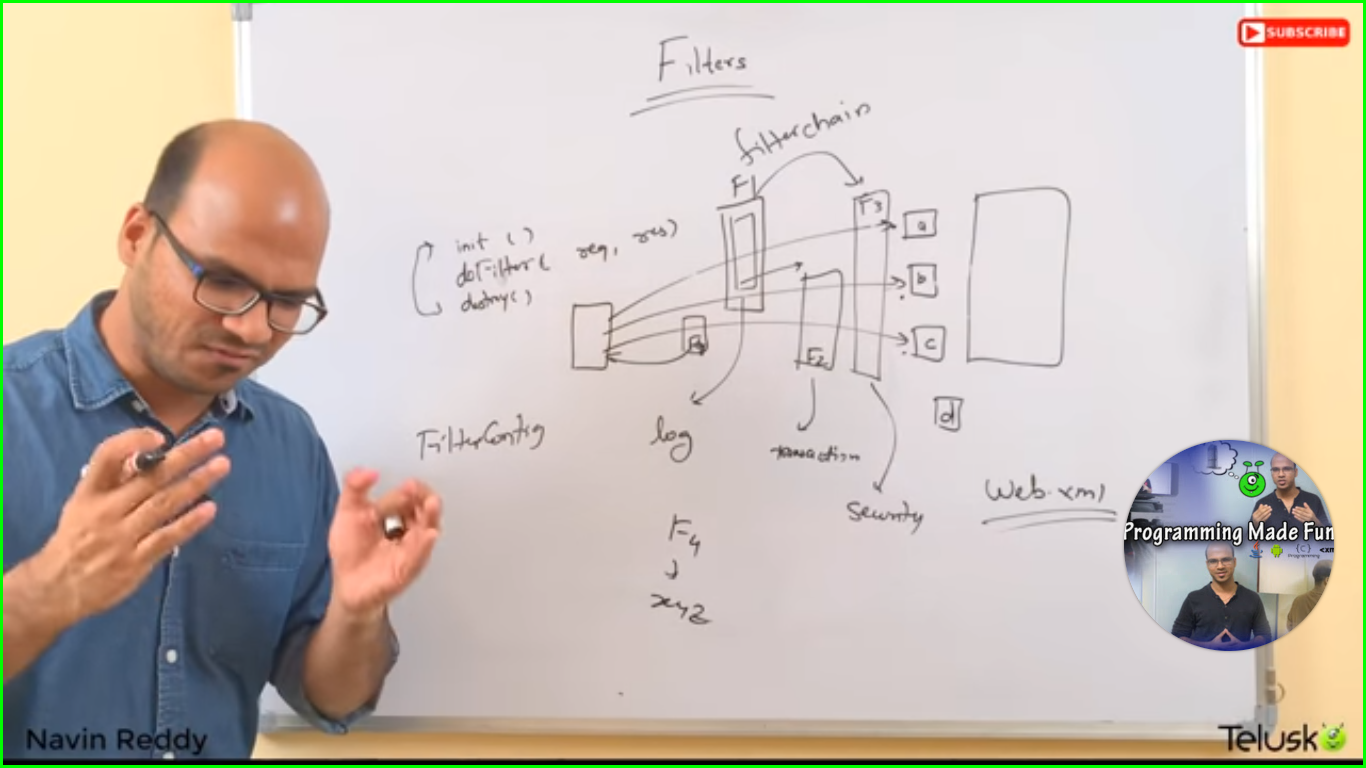 SUBSCRIBE
Filters
filterchain
F1
F3
a
init ( )
doFilter( req, res)
destroy( )
b
c
F2
d
FilterConfig
log
transaction
Security
Web.xml
F4
xyz
Programming Made Fun
Navin Reddy
Telusk